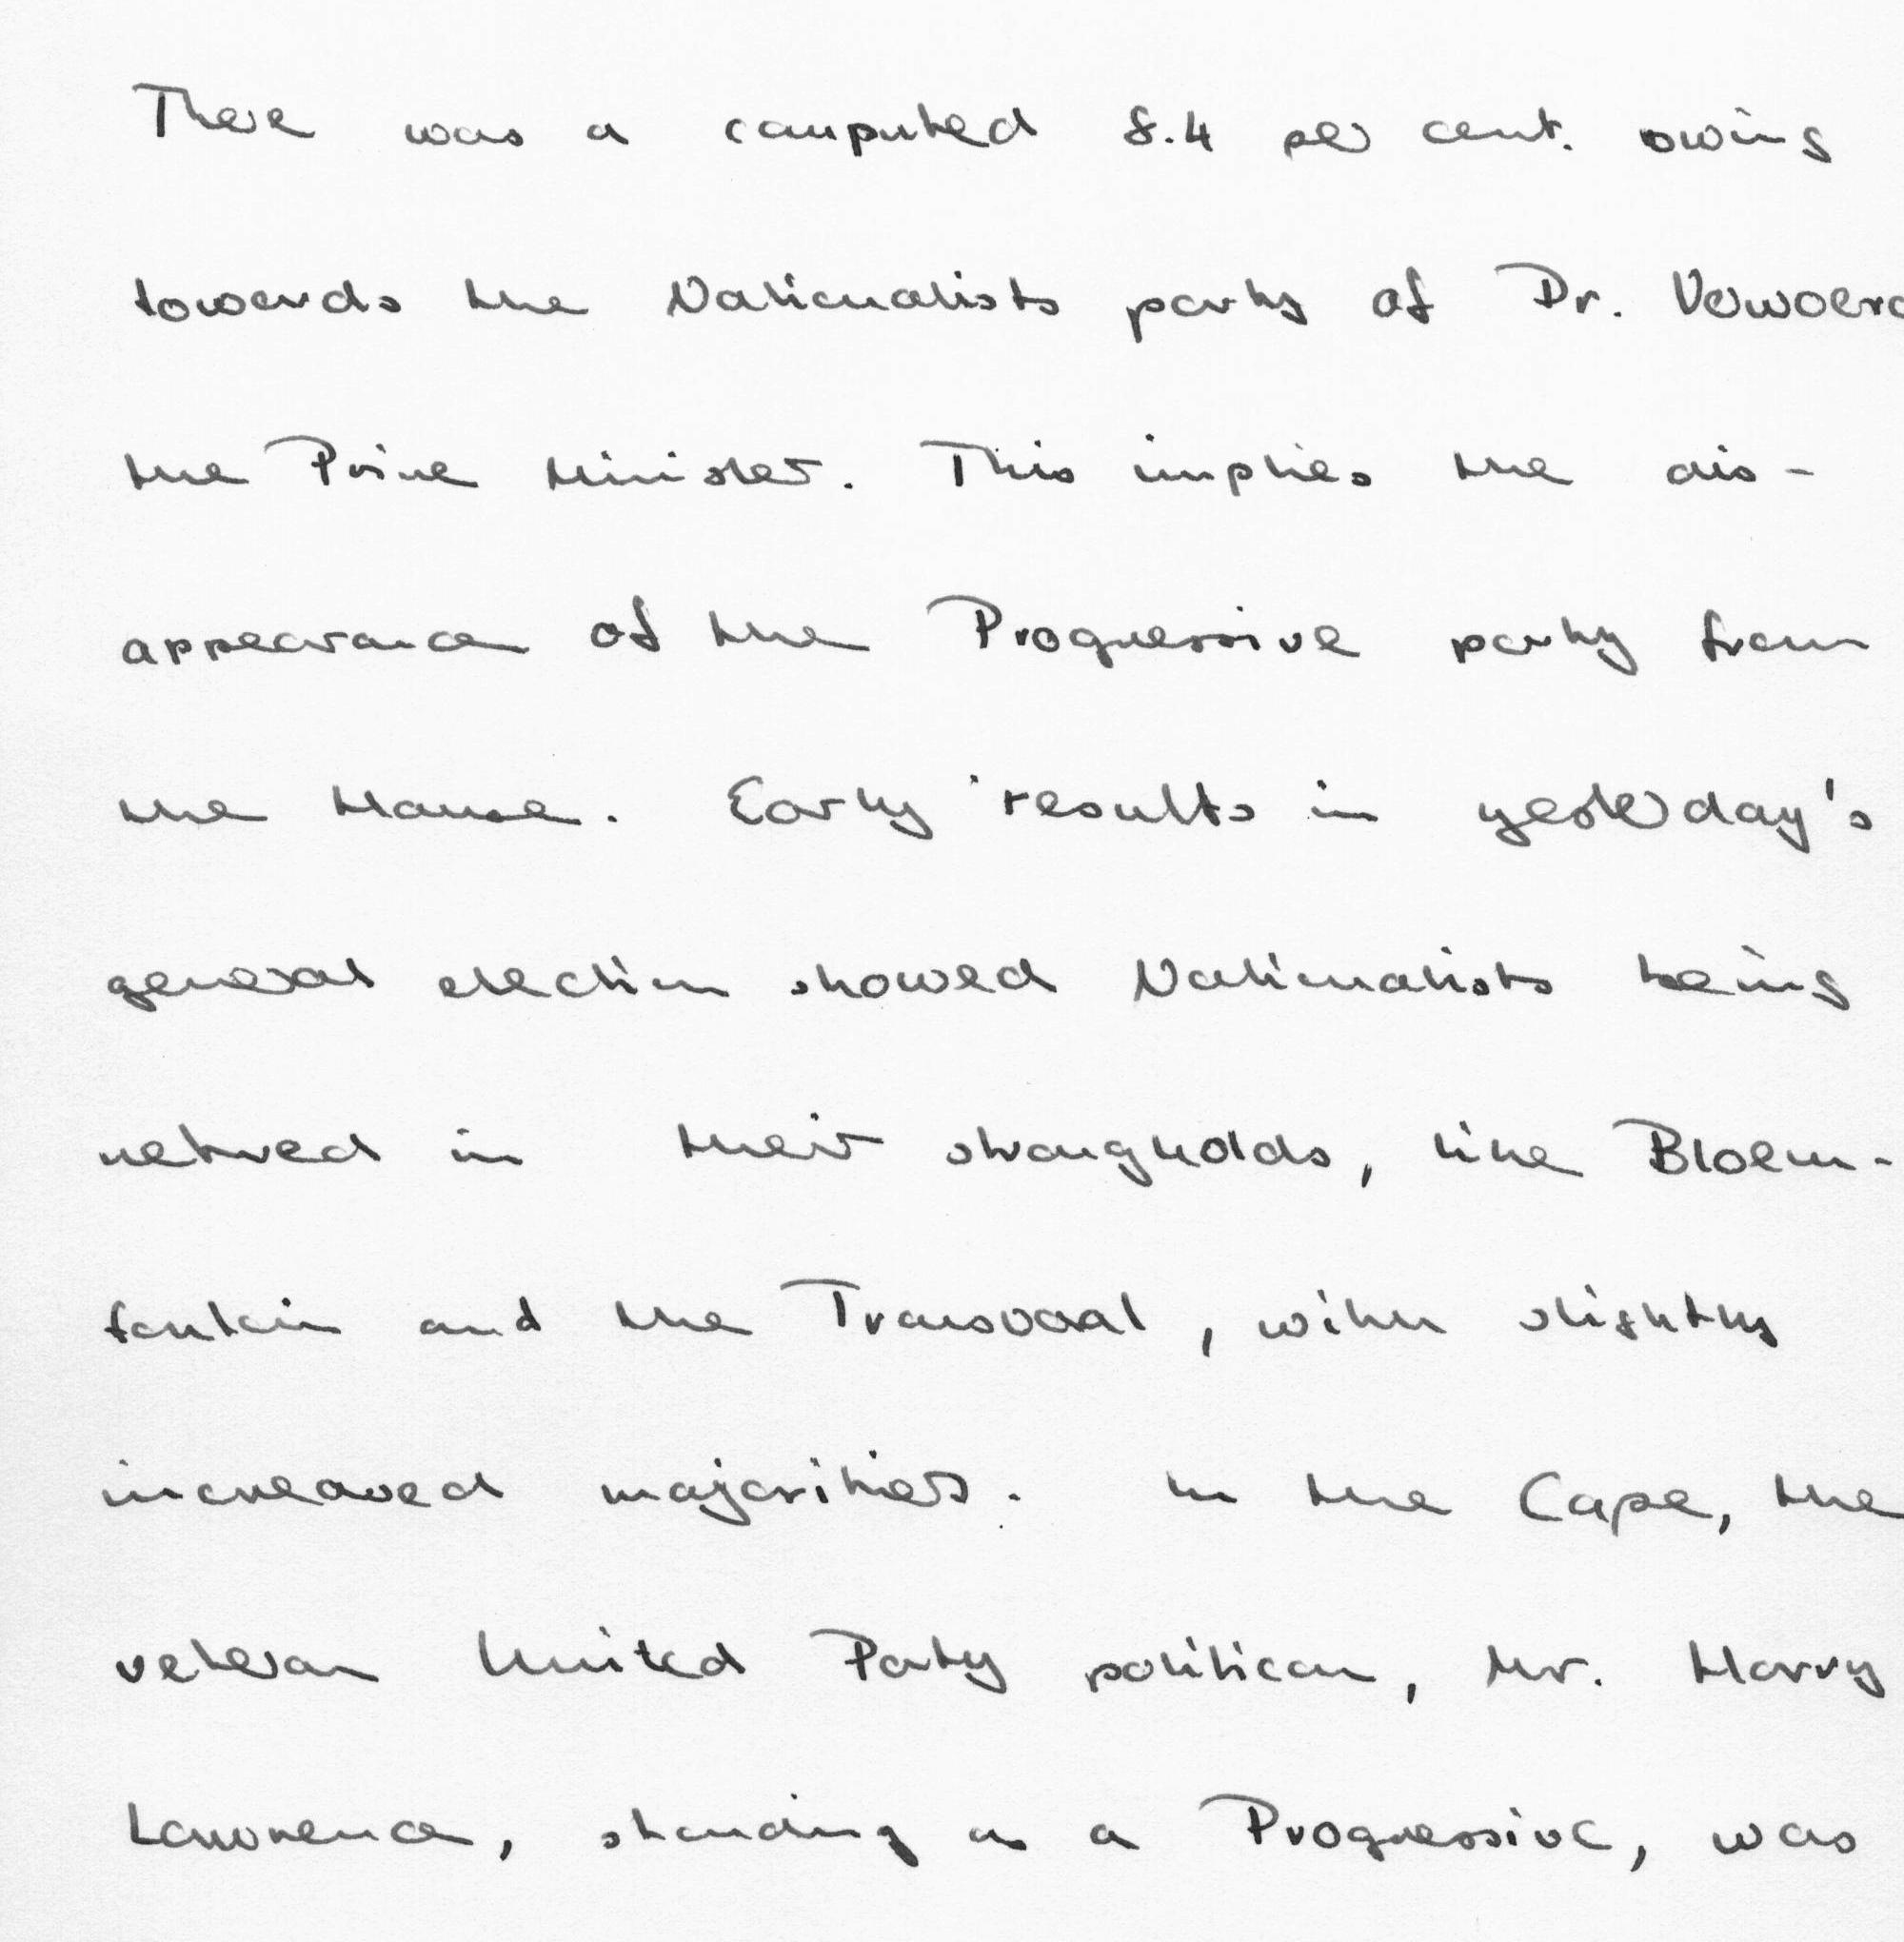 There was a computed 8.4 per cent. swing
towards the Nationalists party of Dr. Verwoerd
the Prime Minister. This implies the dis-
appearance of the Progressive party from
the House. Early results in yesterday's
general election showed Nationalists being
retured in their strongholds, like Bloem-
fontein and the Transvaal, with slightly
increased majorities. In the Cape, the
veteran United Party politican, Mr. Harry
Lawrence, standing as a Progressive, was